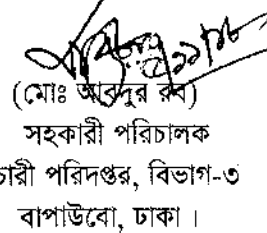 (মোঃ আবদুর রব)
সহকারী পরিচালক
চারী পরিদপ্তর, বিভাগ-৩
বাপাউবো, ঢাকা।